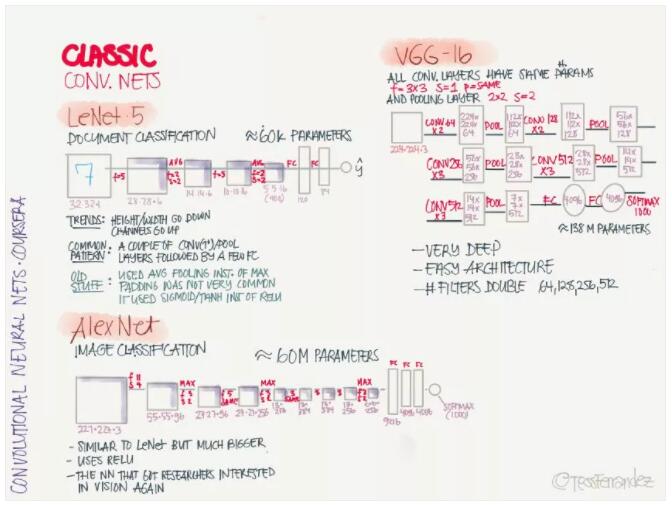 CLASSIC
CONV. NETS
LeNet-5
DOCUMENT CLASSIFICATION ≈60K PARAMETERS
7
f=5
AVG
f=2
S=2
f=5
AVG
f=2
S=2
FC
FC
ŷ
28·28·6
14·14·6
10·10·16
5·5·16
(400)
120
84
TRENDS: HEIGHT/WIDTH GO DOWN
CHANNELS GO UP
COMMON PATTERN: A COUPLE OF CONV(1+)/POOL
LAYERS FOLLOWED BY A FEW FC
OLD STUFF: USED AVG POOLING INST. OF MAX
PADDING WAS NOT VERY COMMON
IT USED SIGMOID/TANH INST OF RELU
AlexNet
IMAGE CLASSIFICATION ≈ 60M PARAMETERS
MAX
MAX
MAX
FC FC FC
227·227·3
55·55·96
27·27·96
27·27·256
4096 4096
SOFTMAX
(1000)
- SIMILAR TO LeNet BUT MUCH BIGGER
- USES RELU
- THE NN THAT GOT RESEARCHERS INTERESTED
IN VISION AGAIN
VGG-16
ALL CONV. LAYERS HAVE SAME PARAMS
f=3x3 S=1 P=SAME
AND POOLING LAYER 2x2 S=2
224·224·3
CONV 64
X2
224x
224x
64
POOL
112x
112x
64
CONV 128
X2
112x
112x
128
POOL
56x
56x
128
CONV 256
X3
56x
56x
256
POOL
28x
28x
256
CONV 512
X3
28x
28x
512
POOL
14x
14x
512
CONV 512
X3
14x
14x
512
POOL
7x
7x
512
FC
4096
FC
4096
SOFTMAX
1000
≈138 M PARAMETERS
- VERY DEEP
- EASY ARCHITECTURE
- # FILTERS DOUBLE 64, 128, 256, 512
CONVOLUTIONAL NEURAL NETS · COURSERA
@TessFerrandez